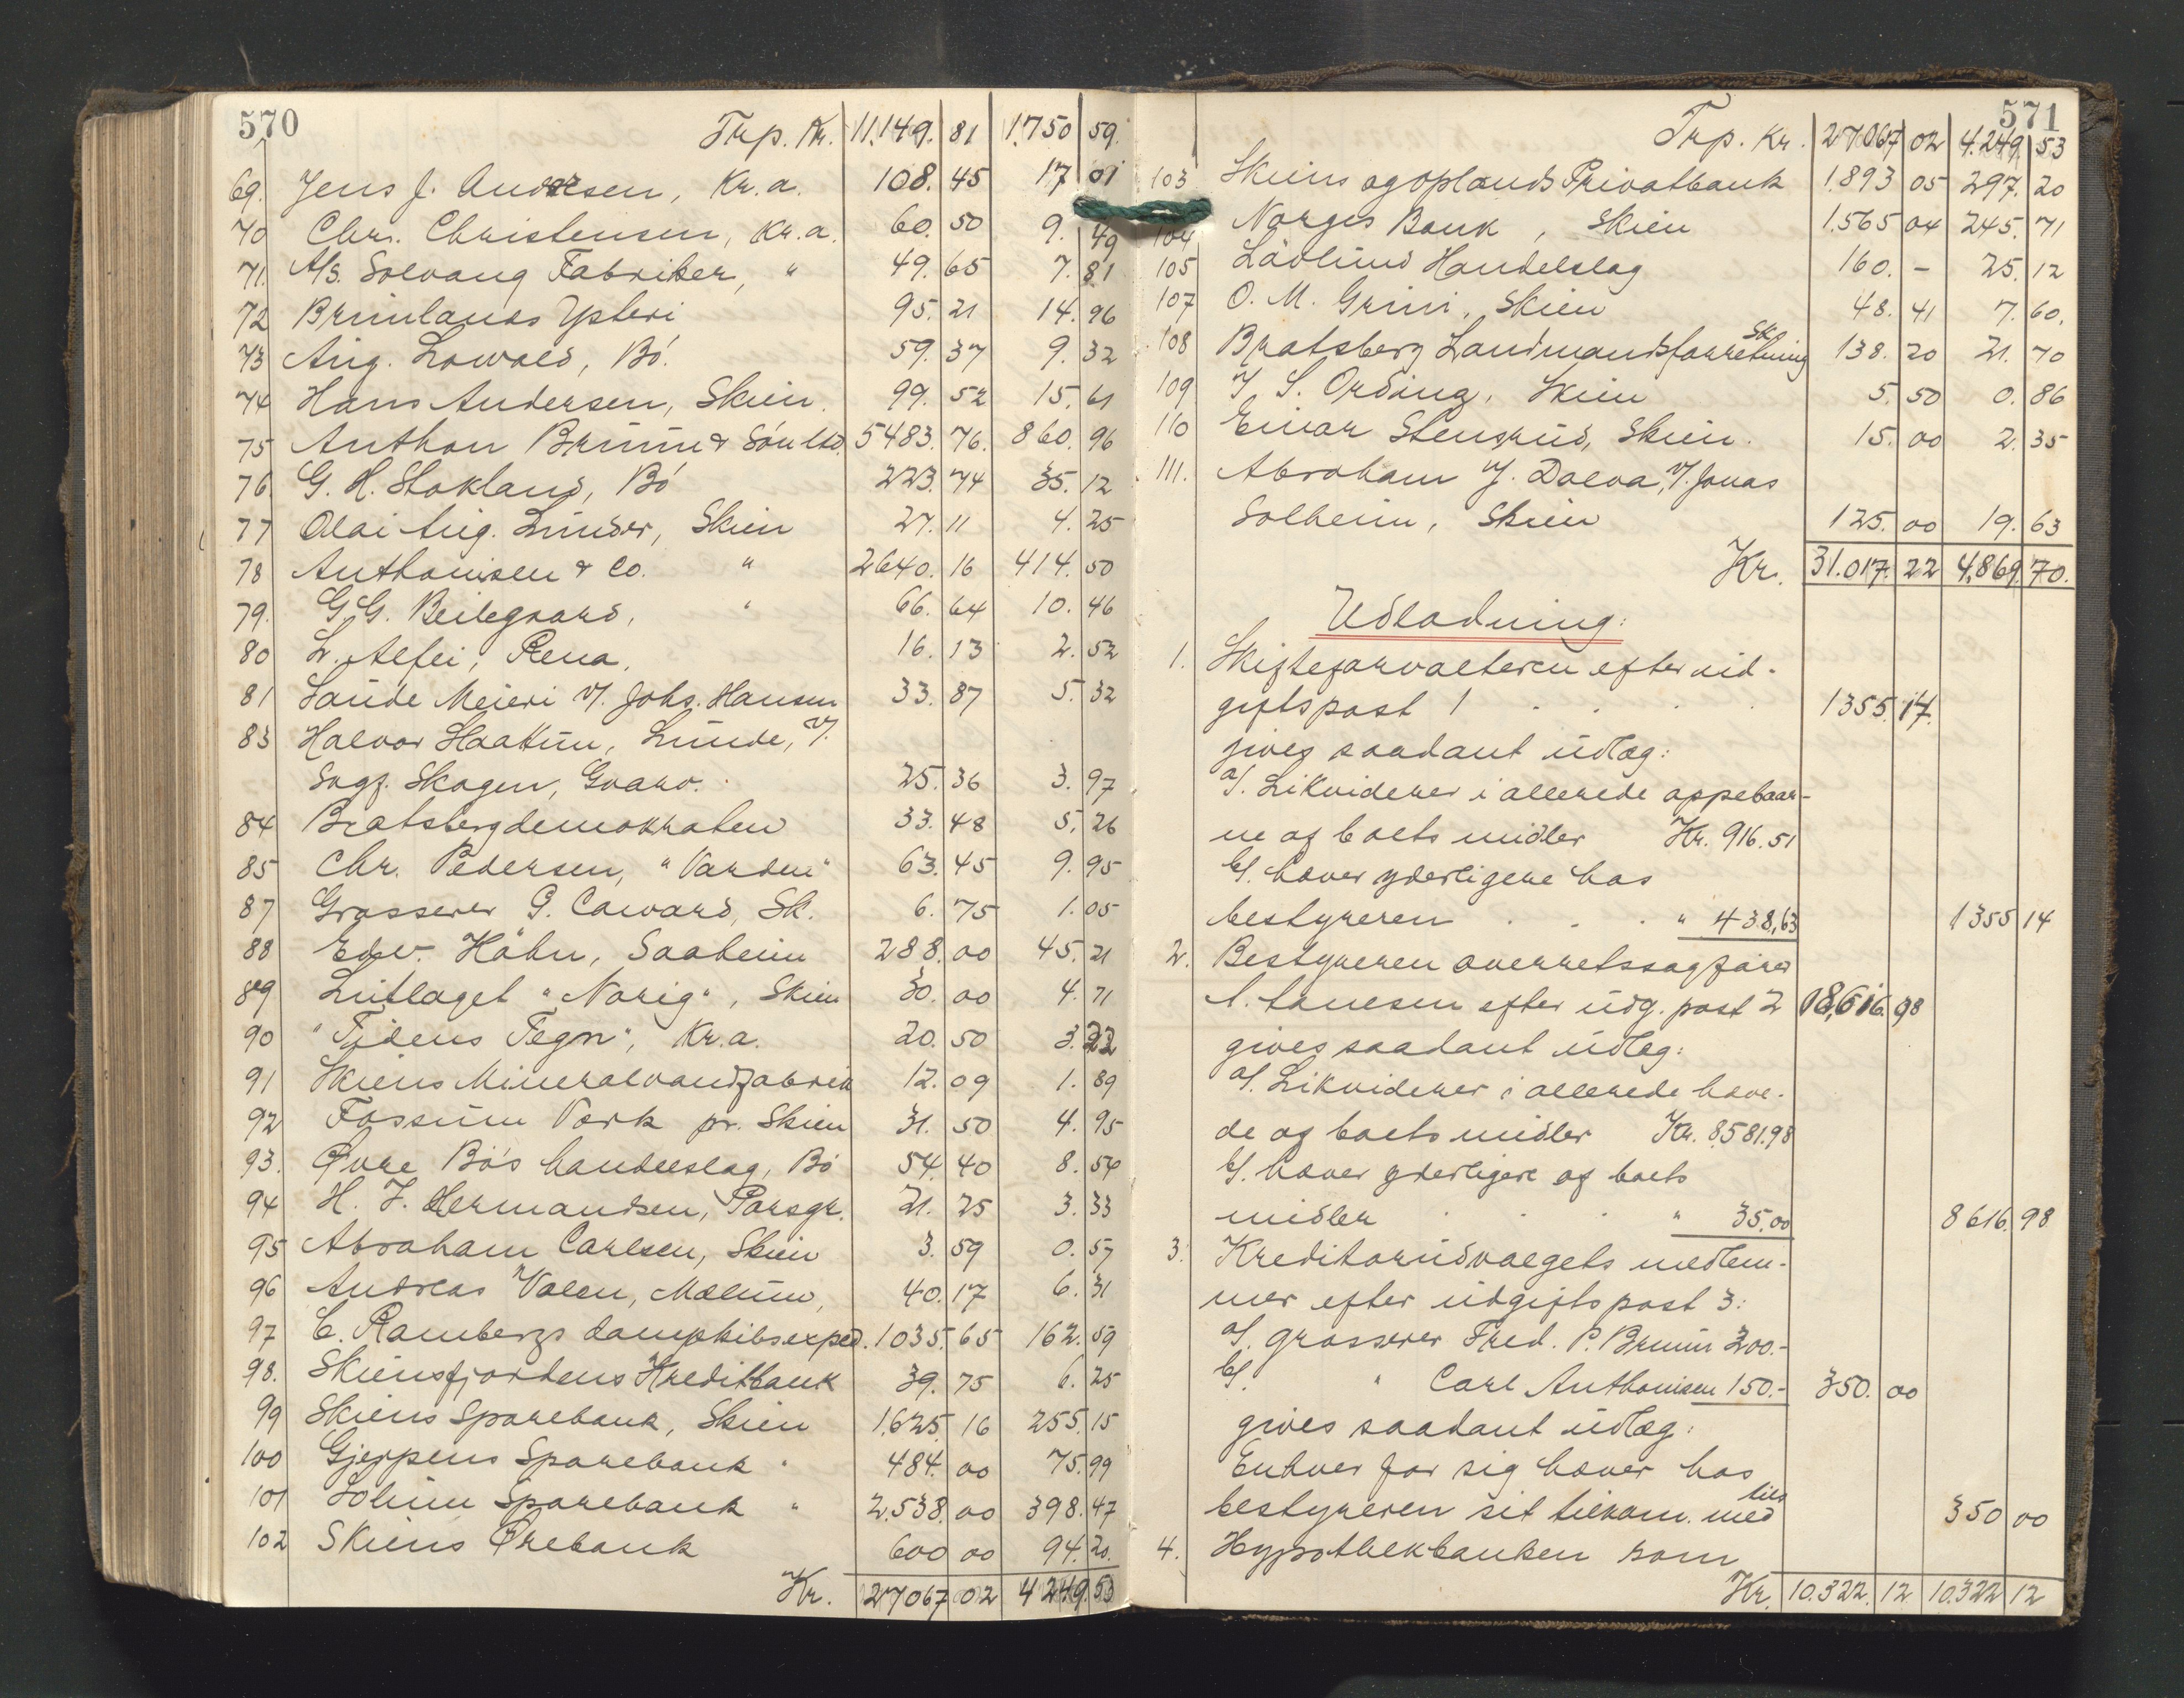 570
Trp. Kr. 11.149. 81 1.750 59.
69. Jens J. Andersen, Kr.a. 108. 45 17 01
70 Chr. Christensen, Kr.a. 60. 50 9. 49
71. A/S. Solvang Fabriker, " 49. 65 7. 81
72 Brunlanes Ysteri 95. 21 14. 96
73 Aug. Lowald, Bö. 59. 37 9. 32
74 Hans Andersen, Skien. 99. 52 15. 61
75 Anthon Bruun & Sön Ltd. 5483. 76. 860. 96
76. G. H. Stokland, Bö 223. 74 35. 12
77 Olai Aug. Linder, Skien 27. 11 4. 25
78 Anthonisen & Co. " 2640. 16 414. 50
79. G.G. Beilegaard, " 66. 64 10. 46
80 L. Alfei, Rena. 16. 13 2. 52
81 Saude Meieri v/. Johs. Hansen 33. 87 5. 32
83 Halvor Haatun, Lunde, v/.
Sagf. Skogen, Gvarv. 25. 36 3. 97
84 Bratsbergdemokraten 33. 48 5. 26
85 Chr. Pedersen, "Varden" 63. 45 9. 95
87 Grosserer G. Coward, Sk. 6. 75 1. 05
88 Edv. Höhn, Saaheim 288. 00 45. 21
89 Luftlaget "Norig", Skien 30. 00 4. 71
90 "Tidens Tegn", Kr.a. 20. 50 3. 22
91 Skiens Mineralvandfabrik 12. 09 1. 89
92 Fossum Værk pr. Skien 31. 50 4. 95
93. Øvre Bö's handelslag, Bö 54. 40 8. 54
94 H. J. Hermansen, Porsgr. 21. 25 3. 33
95 Abraham Carlsen, Skien 3. 59 0. 57
96 Andreas Valen, Mælum, 40. 17 6. 31
97 C. Rambergs dampskibsexped. 1035. 65 162. 59
98. Skiensfjordens Kreditbank 39. 75 6. 25
99 Skiens Sparebank, Skien 1.625. 16 255. 15
100 Gjerpens Sparebank " 484. 00 75. 99
101 Solum Sparebank " 2.538. 00 398. 47
102 Skiens Ørebank 600 00 94. 20.
Kr. 27067 02 4249. 53
571
Trp. Kr. 27067 02 4.249. 53
103 Skiens og oplands Privatbank 1.893 05 297. 20
104 Norges Bank, Skien 1.565 04 245. 71
105 Lövlund Handelslag 160. - 25. 12
107 O. M. Grini, Skien 48. 41 7. 60.
108 Bratsberg Landmandsforretning Sk. 138. 20 21. 70
109 J S. Ording, Skien 5. 50 0. 86
110 Einar Stensrud, Skien. 15. 00 2. 35
111. Abraham J. Dalva, v/. Jonas
Solheim, Skien 125. 00 19. 63
Kr. 31.017. 22 4.869. 70.
Udlodning:
1. Skifteforvalteren efter ud-
giftspost 1 . . . . 1355. 14.
gives saadant udlæg:
a/. Likviderer i allerede oppebaar-
ne af boets midler Kr. 916.51
b/. hæver yderligere hos
bestyreren . . . " 438,63 1355 14
2. Bestyreren overretssagfører
A. Hansen efter udg. post 2 8,616. 98
gives saadant udlæg:
a/. Likviderer i allerede hæve-
de af boets midler Kr. 8581.98
b/. hæver yderligere af boets
midler . . . " 35.00 8616. 98
3. Kreditorudvalgets medlem-
mer efter udgiftspost 3:
a/. grosserer Fred. P. Bruun 200.-
b/. " Carl Anthonisen 150.- 350. 00
gives saadant udlæg:
Enhver for sig hæver hos
bestyreren sit tilkom. med tils 350 00
4. Hypothekbanken som
Kr. 10.322. 12 10.322 12